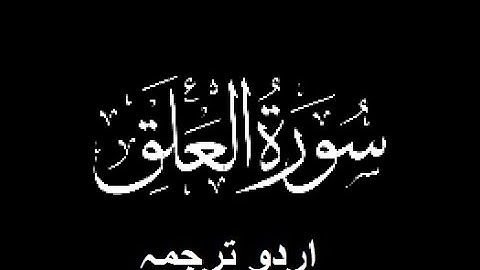 سُورَةُ العَلَقِ
اردو ترجمہ